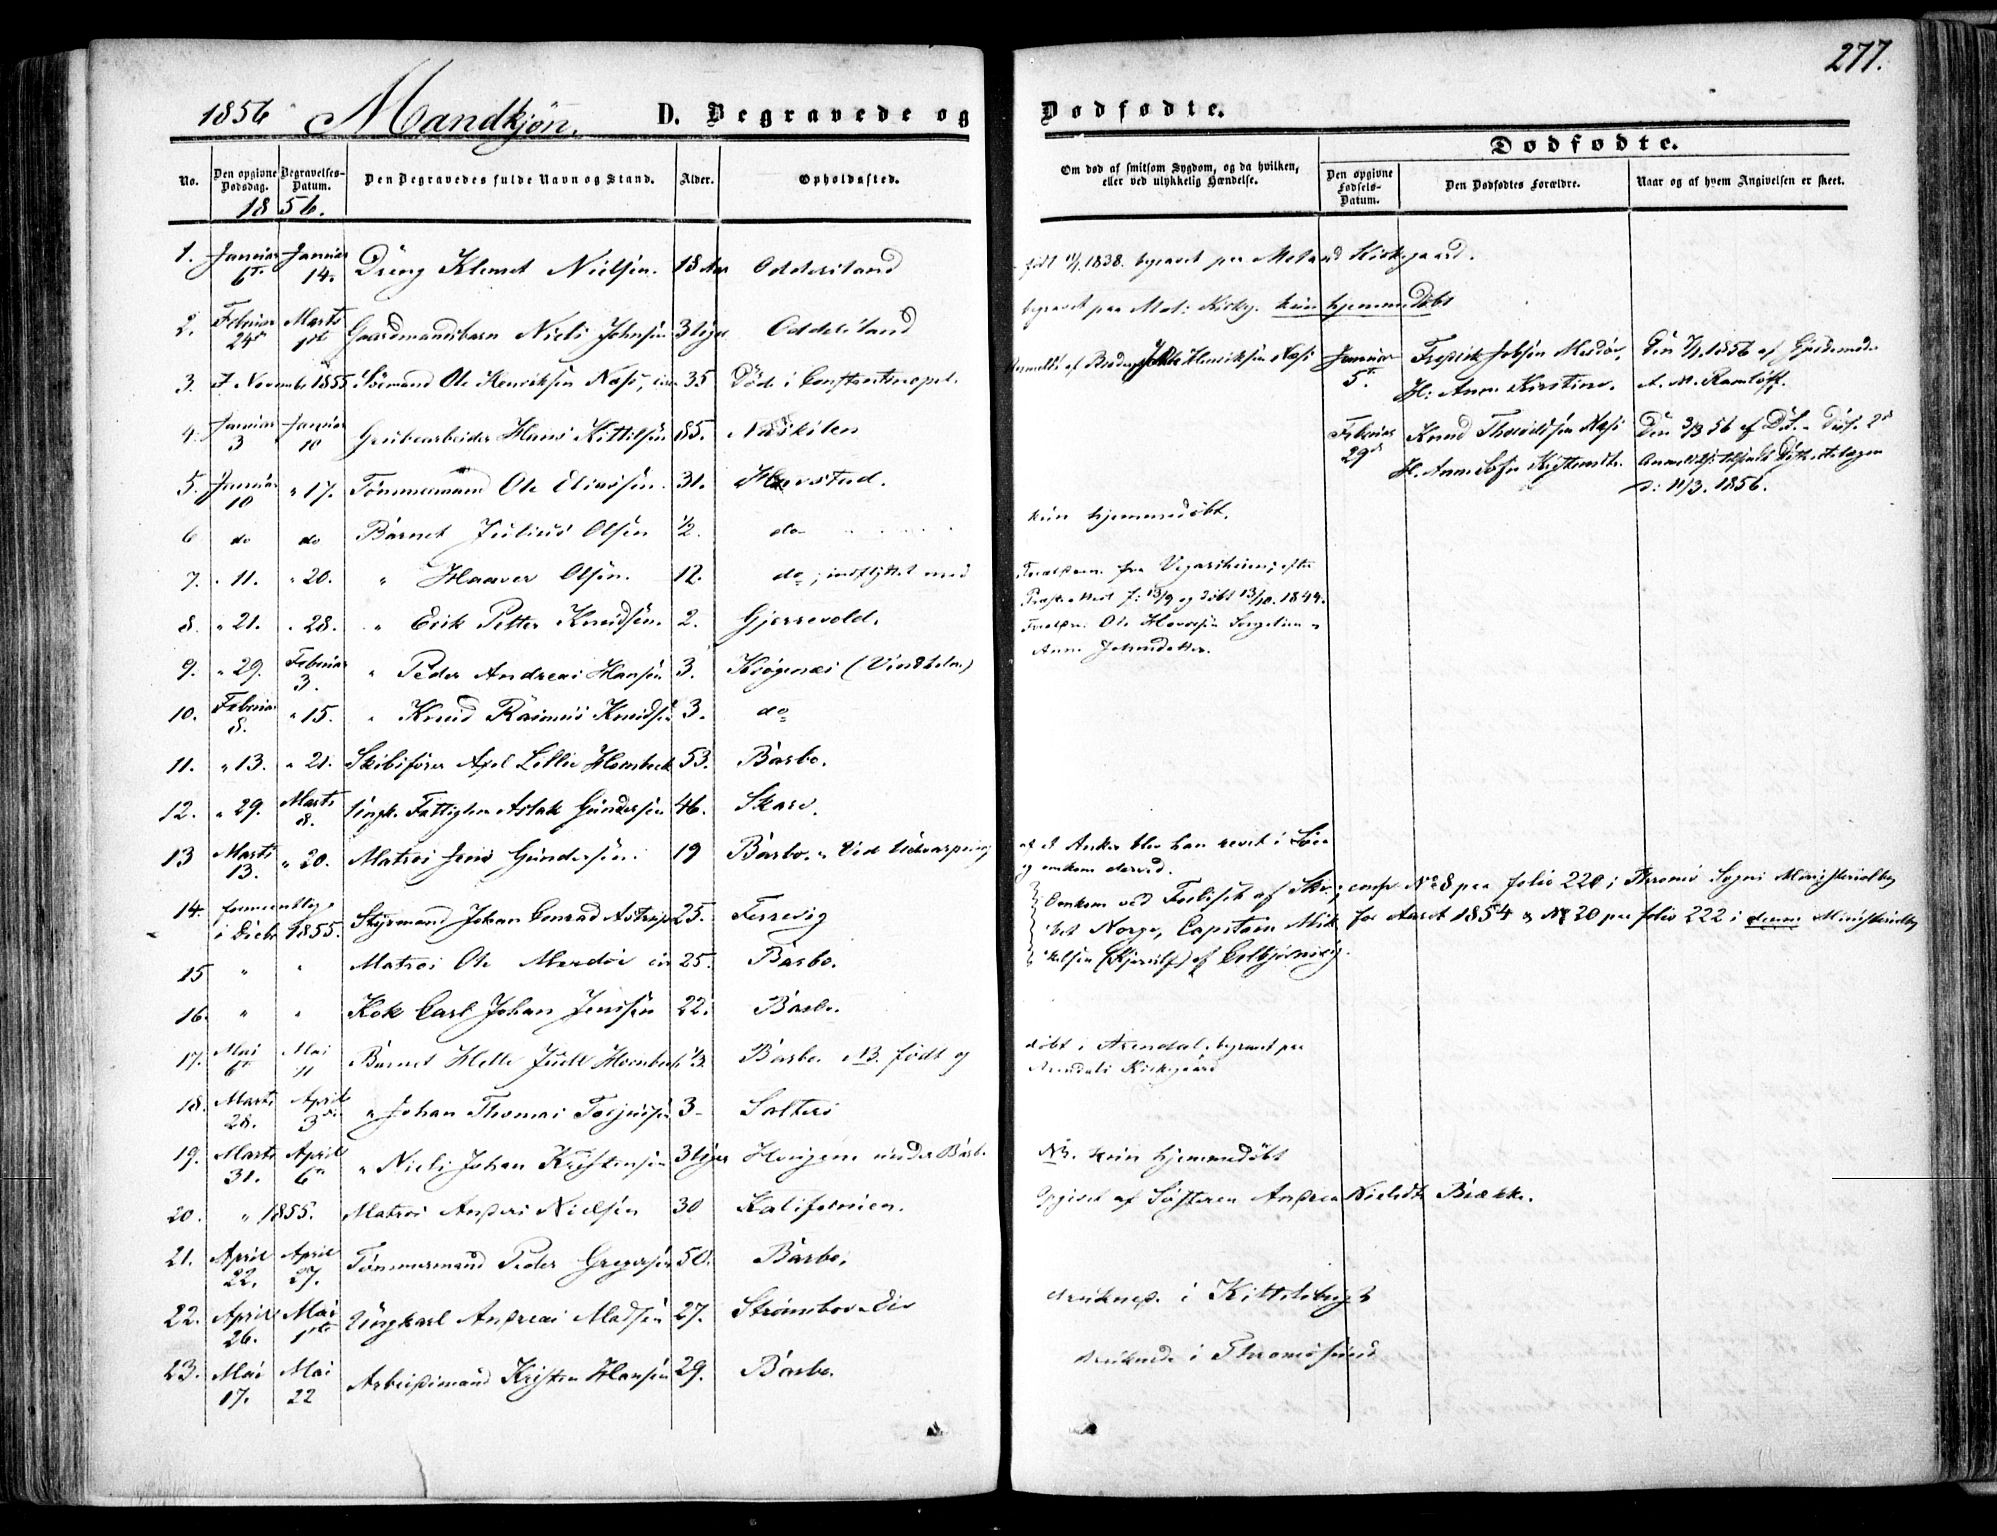 277.
1856 Mandkjøn. D. Begravede og Dødfødte.
Dødfødte.
No. Den opgivne Dødsdag. Begravelses-Datum. Den Begravedes fulde Navn og Stand. Alder. Opholdssted. Om død af smitsom Sygdom, og da hvilken, eller ved ulykkelig Hændelse. Den opgivne Fødsels-Datum. Den Dødfødtes Forældre. Naar og af hvem Angivelsen er skeet.
1856.
1. Januar 6te Januar 14. Dreng Klemet Nielsen. 18 Aar Oddersland født 1838. begravet paa Kirkegaard.
2. Februar 24de Marts 1ste Gaardmandsbarn Niels Johnsen 3 Uger Oddersland begravet paa Kirkeg. kun hjemmedøbt
3. I November 1855 Sømand Ole Henriksen Næs, 35 Død i Constantinopel. Anmeldt af Broderen Henriksen Næs
Januar 5te Fredrik Jobsen Merdø, H: Anne Kirstine. Den 1856 af Gjordemdr A. M. Ramløff.
4. Januar 3 Januar 10 Grubearbeider Hans Kittilsen 85. Næskilen
Februar 29de Knud Næs H. Anne Den 3/3 56 af
d: 11/3. 1856.
5. Januar 10 " 17. Tømmermand Ole Eliassen. 31. Havstad.
6 do do Barnet Julius Olsen 1/2. do kun hjemmedøbt.
7. " 11. " 20. " Haaver Olsen. 12. do, indflyttet med Forældrene fra Vegarsheien; efter
Præsteattest f: 13/9 og døbt 13/10. 1844.
Forældre: Ole
Anne
8. " 21. " 28. " Erik Petter Knudsen. 2. Gjerrevold.
9. " 29. Februar 3. " Peder Andreas Hansen 3. Krøgenæs (Vindholm)
10. Februar 8. " 15. " Knud Rasmus Knudsen 3. do
11. " 13. " 21. Skibsfører Axel Lillie Hornbeck 53. Barbo.
12. " 29. Marts 8. Ungk. Fattiglem Aslak Gundersen 46. Skare.
13 Marts 13. " 20. Matros Jens Gundersen. 19 Barbo. " Ved Udkastning af et Anker blev han revet i Søen
og omkom derved.
14. formeentlig i Decbr 1855. Styrmand Johan Conrad 25. Ferrevig Omkom ved Forliset af Skib; conf No 8 paa folio 220 i Thromø Sogns Ministerialbog
for Aaret 1854 & No 20 paa folio 222 i denne Ministerialbog
15 " " Matros Ole Merdø 25. Barbo. Norge, Capitain
16. " " Kok Carl Johan Jenssen 22. Barbo.
17. Mai 6te Mai 11 Barnet Juell Hornbeck 1/3 Barbo NB. født og døbt i Arendal, begravet paa
Arendals Kirkegaard
18. Marts 28. April 3die " Johan Thomas Terjussen 3 Salterø
19. Marts 31. April 6te " Niels Johan Kristensen 3 Uger Haugene under Barbo NB. kun hjemmedøbt
20. " 1855. Matros Anders Nielsen 30 Kalifornien. Opgivet af Søsteren Andrea Nielsdtr Brække.
21. April 22. April 27. Tømmermand Peder Gregersen 50. Barbo.
22. April 26. Mai 1ste Ungkarl Andreas Madsen 27. Strømsbo druknet i Kittelsbugt
23. Mai 17. Mai 22 Arbeidsmand Kristen Hansen 29. Barbo. druknede i Thromøsund